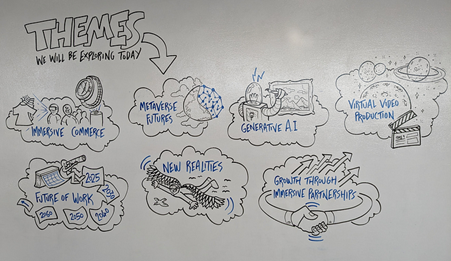 THEMES
WE WILL BE EXPLORING TODAY
IMMERSIVE COMMERCE
METAVERSE
FUTURES
GENERATIVE AI
VIRTUAL VIDEO
PRODUCTION
FUTURE OF WORK
2025
2050
NEW REALITIES
GROWTH THROUGH
IMMERSIVE PARTNERSHIPS